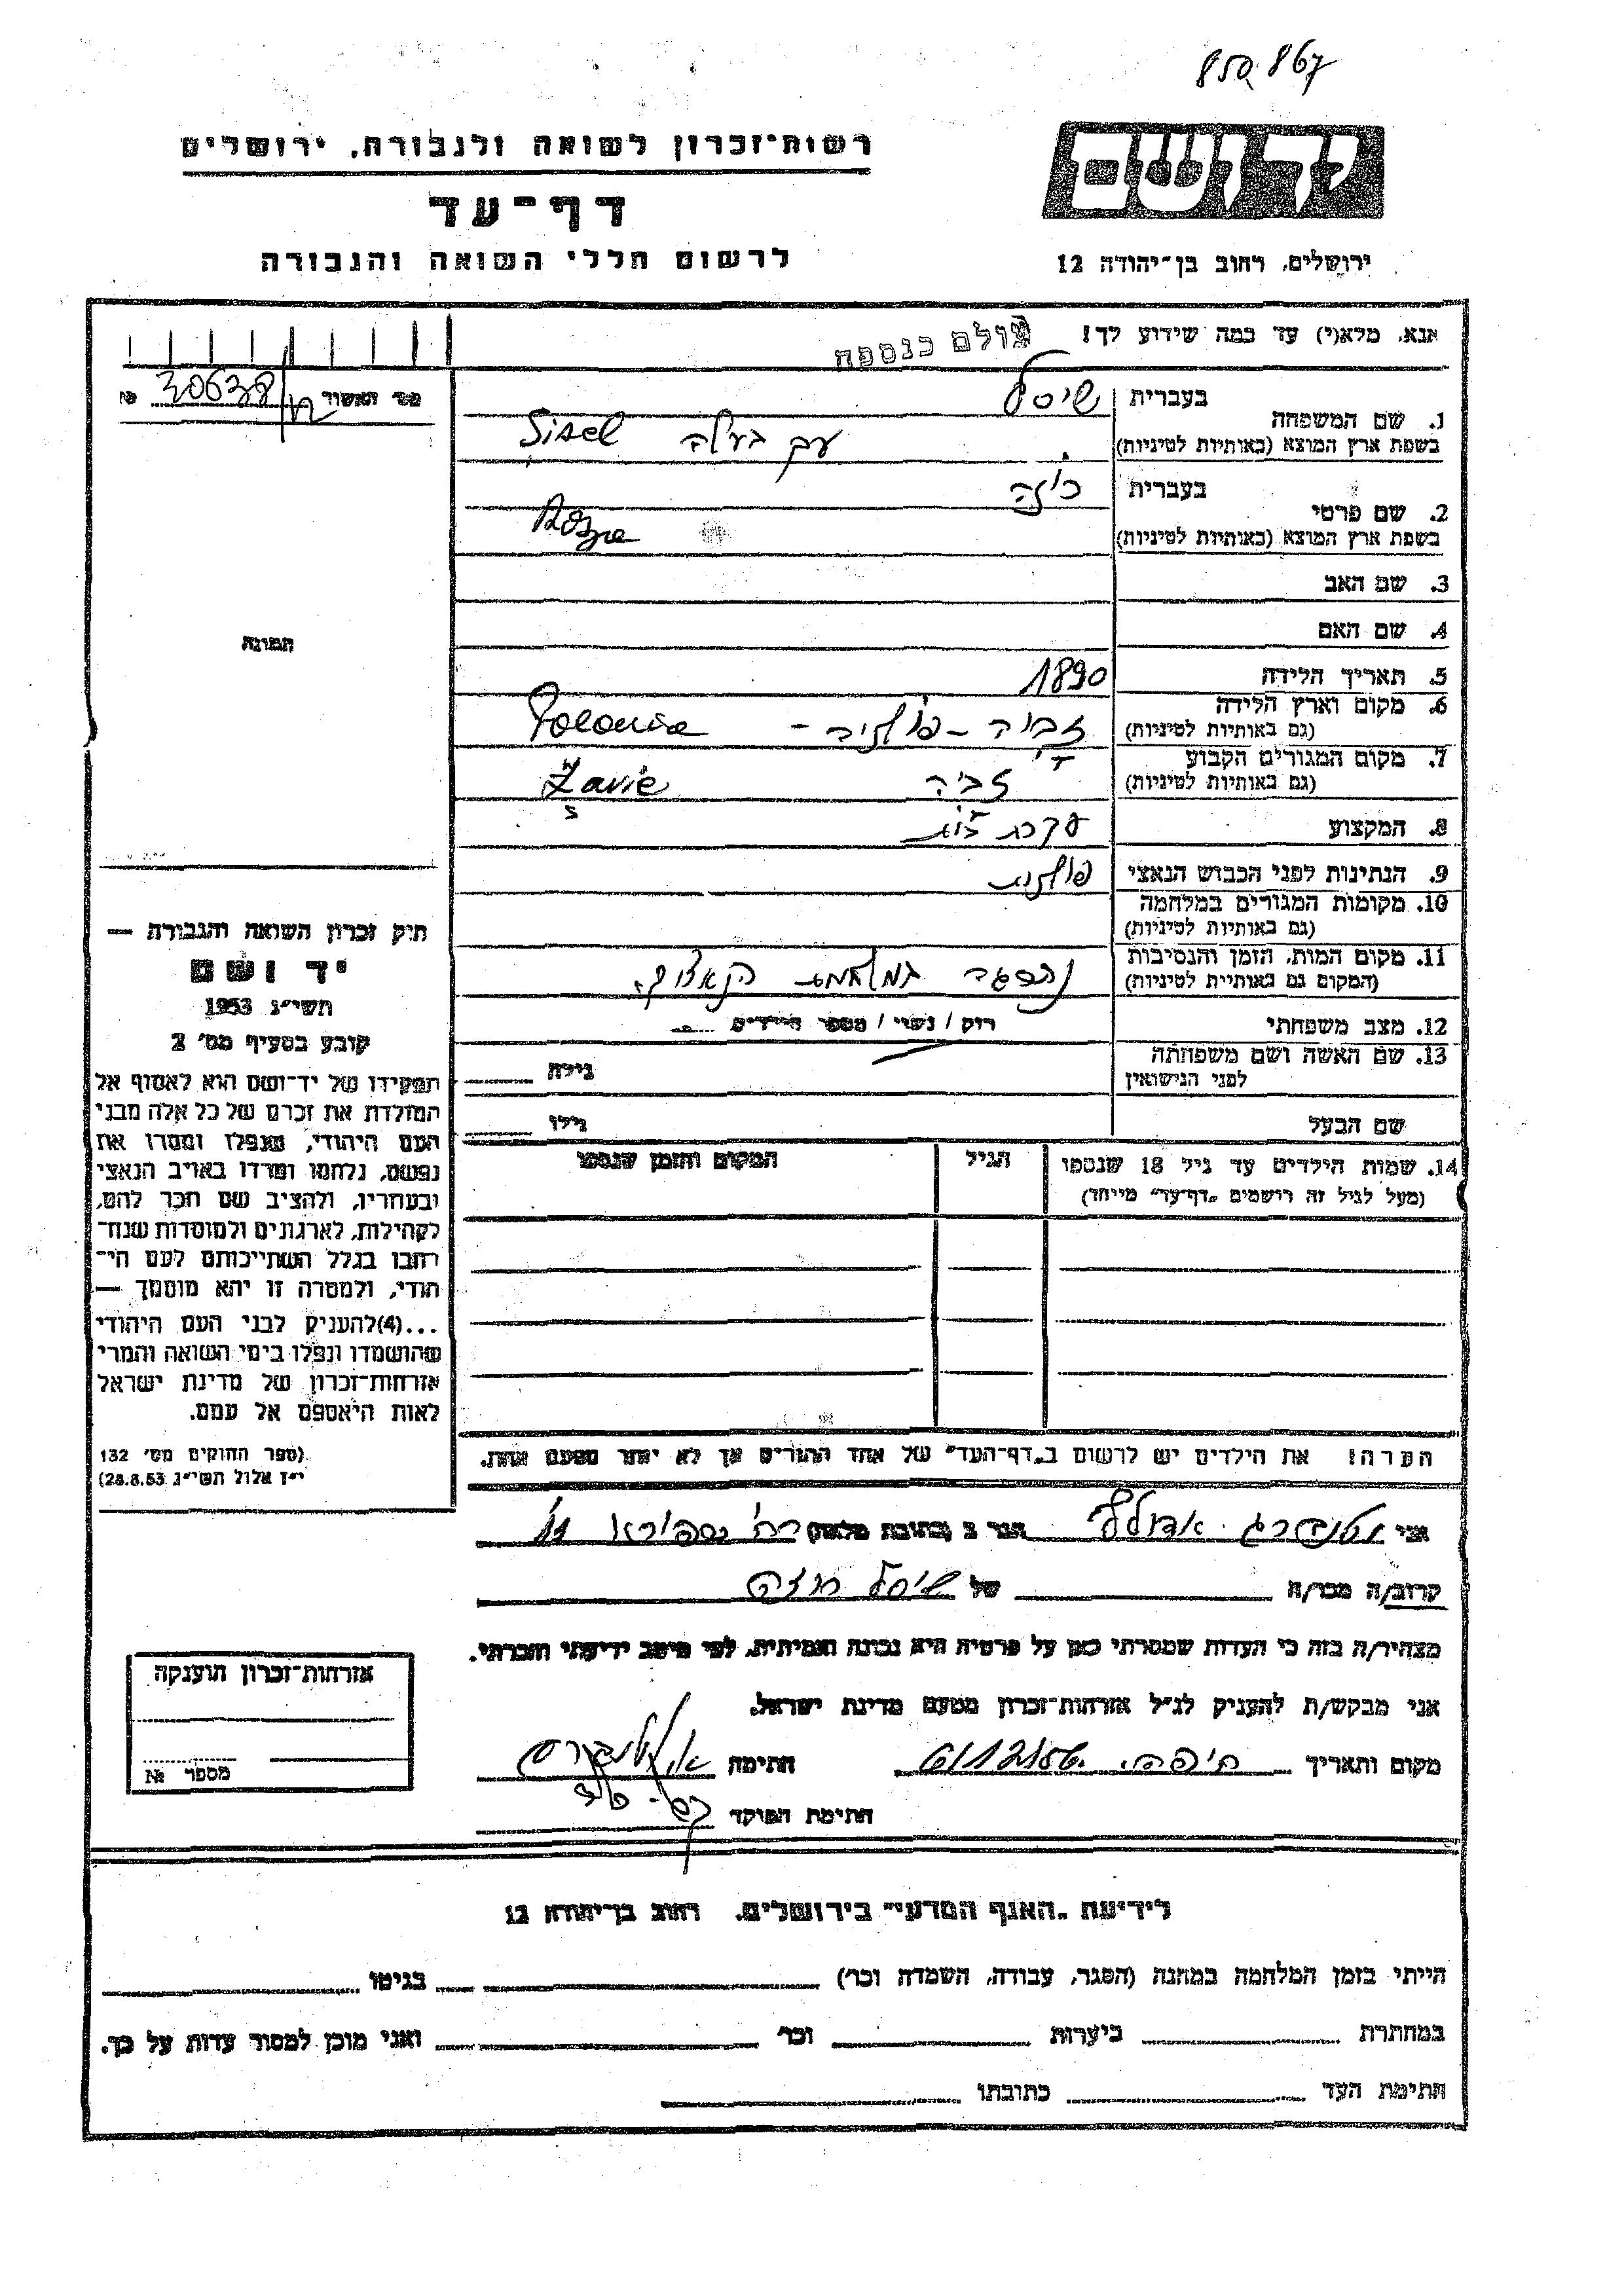 850.867
יד ושם
רשות־זכרון לשואה ולגבורה, ירושלים
דף־עד
לרשום חללי השואה והגבורה
ירושלים, רחוב בן־יהודה 12
אנא, מלא(י) עד כמה שידוע לך! צולם כנספח
№ 30638
1. שם המשפחה
בעברית שיסל
בשפת ארץ המוצא (באותיות לטיניות) עם בעלה Sisel
2. שם פרטי
בעברית רוזה
בשפת ארץ המוצא (באותיות לטיניות) Rozia
3. שם האב
4. שם האם
5. תאריך הלידה 1890
6. מקום וארץ הלידה
(גם באותיות לטיניות) זביה - פולניה - Polonia
7. מקום המגורים הקבוע
(גם באותיות לטיניות) זביה Zavie
8. המקצוע עקרת בית
9. הנתינות לפני הכבוש הנאצי פולנית
10. מקומות המגורים במלחמה
(גם באותיות לטיניות)
11. מקום המות, הזמן והנסיבות
(המקום גם באותיות לטיניות) נהרגה במלחמת
12. מצב משפחתי רוק / נשוי / מספר הילדים
13. שם האשה ושם משפחתה
לפני הנישואין גילה
שם הבעל גילו
14. שמות הילדים עד גיל 18 שנספו הגיל המקום והזמן שנספו
(מעל לגיל זה רישמים „דף־עד” מיוחד)
הערה! את הילדים יש לרשום ב„דף־העד” של אחד ההורים אך לא יותר מפעם אחת.
התמונה
תיק זכרון השואה והגבורה —
יד ושם
תשי״ג 1953
קובע בסעיף מס׳ 2
תפקידו של יד־ושם הוא לאסוף אל
המולדת את זכרם של כל אלה מבני
העם היהודי, שנפלו ומסרו את
נפשם, נלחמו ומרדו באויב הנאצי
ובעוזריו, ולהציב שם וזכר להם,
לקהילות, לארגונים ולמוסדות שנח־
רבו בגלל השתייכותם לעם הי־
הודי, ולמטרה זו יהא מוסמך —
...(4)להעניק לבני העם היהודי
שהושמדו ונפלו בימי השואה והמרי
אזרחות־זכרון של מדינת ישראל
לאות היאספם אל עמם.
(ספר החוקים מס׳ 132
י״ז אלול תשי״ג 28.8.53)
אני אדולף הגר ב (כתובת מלאה) רח׳
קרוב/ה מכר/ה של שיסל רוזה
מצהיר/ה בזה כי העדות שמסרתי כאן על פרטיה היא נכונה ואמיתית, לפי מיטב ידיעתי והכרתי.
אני מבקש/ת להעניק לנ״ל אזרחות־זכרון מטעם מדינת ישראל.
מקום ותאריך חיפה חתימה
חתימת הפוקד
אזרחות־זכרון הוענקה
מספר №
לידיעת „האגף המדעי” בירושלים, רחוב בן־יהודה 12
הייתי בזמן המלחמה במחנה (הסגר, עבודה, השמדה וכו׳) בגיטו
במחתרת ביערות וכו׳ ואני מוכן למסור עדות על כך.
חתימת העד כתובתו